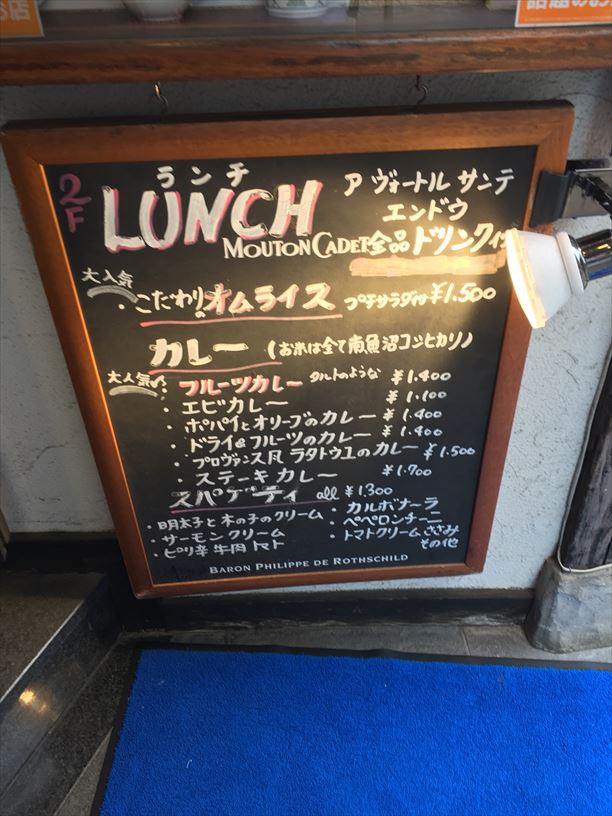 2F
ランチ
LUNCH
ア ヴォートル サンテ
エンドウ
MOUTON CADET
全品ドリンク付
大人気
・こだわりのオムライス プチサラダ付 ¥1.500
カレー (お米は全て南魚沼コシヒカリ)
大人気
フルーツカレー タルトのような ¥1.400
・エビカレー ¥1.100
・ポパイとオリーブのカレー ¥1.400
・ドライ&フルーツのカレー ¥1.400
・プロヴァンス風 ラタトウユのカレー ¥1.500
・ステーキカレー ¥1.700
スパゲティ all ¥1.300
・明太子と木の子のクリーム
・サーモンクリーム
・ピリ辛牛肉トマト
・カルボナーラ
・ペペロンチーニ
・トマトクリームささみ
その他
BARON PHILIPPE DE ROTHSCHILD